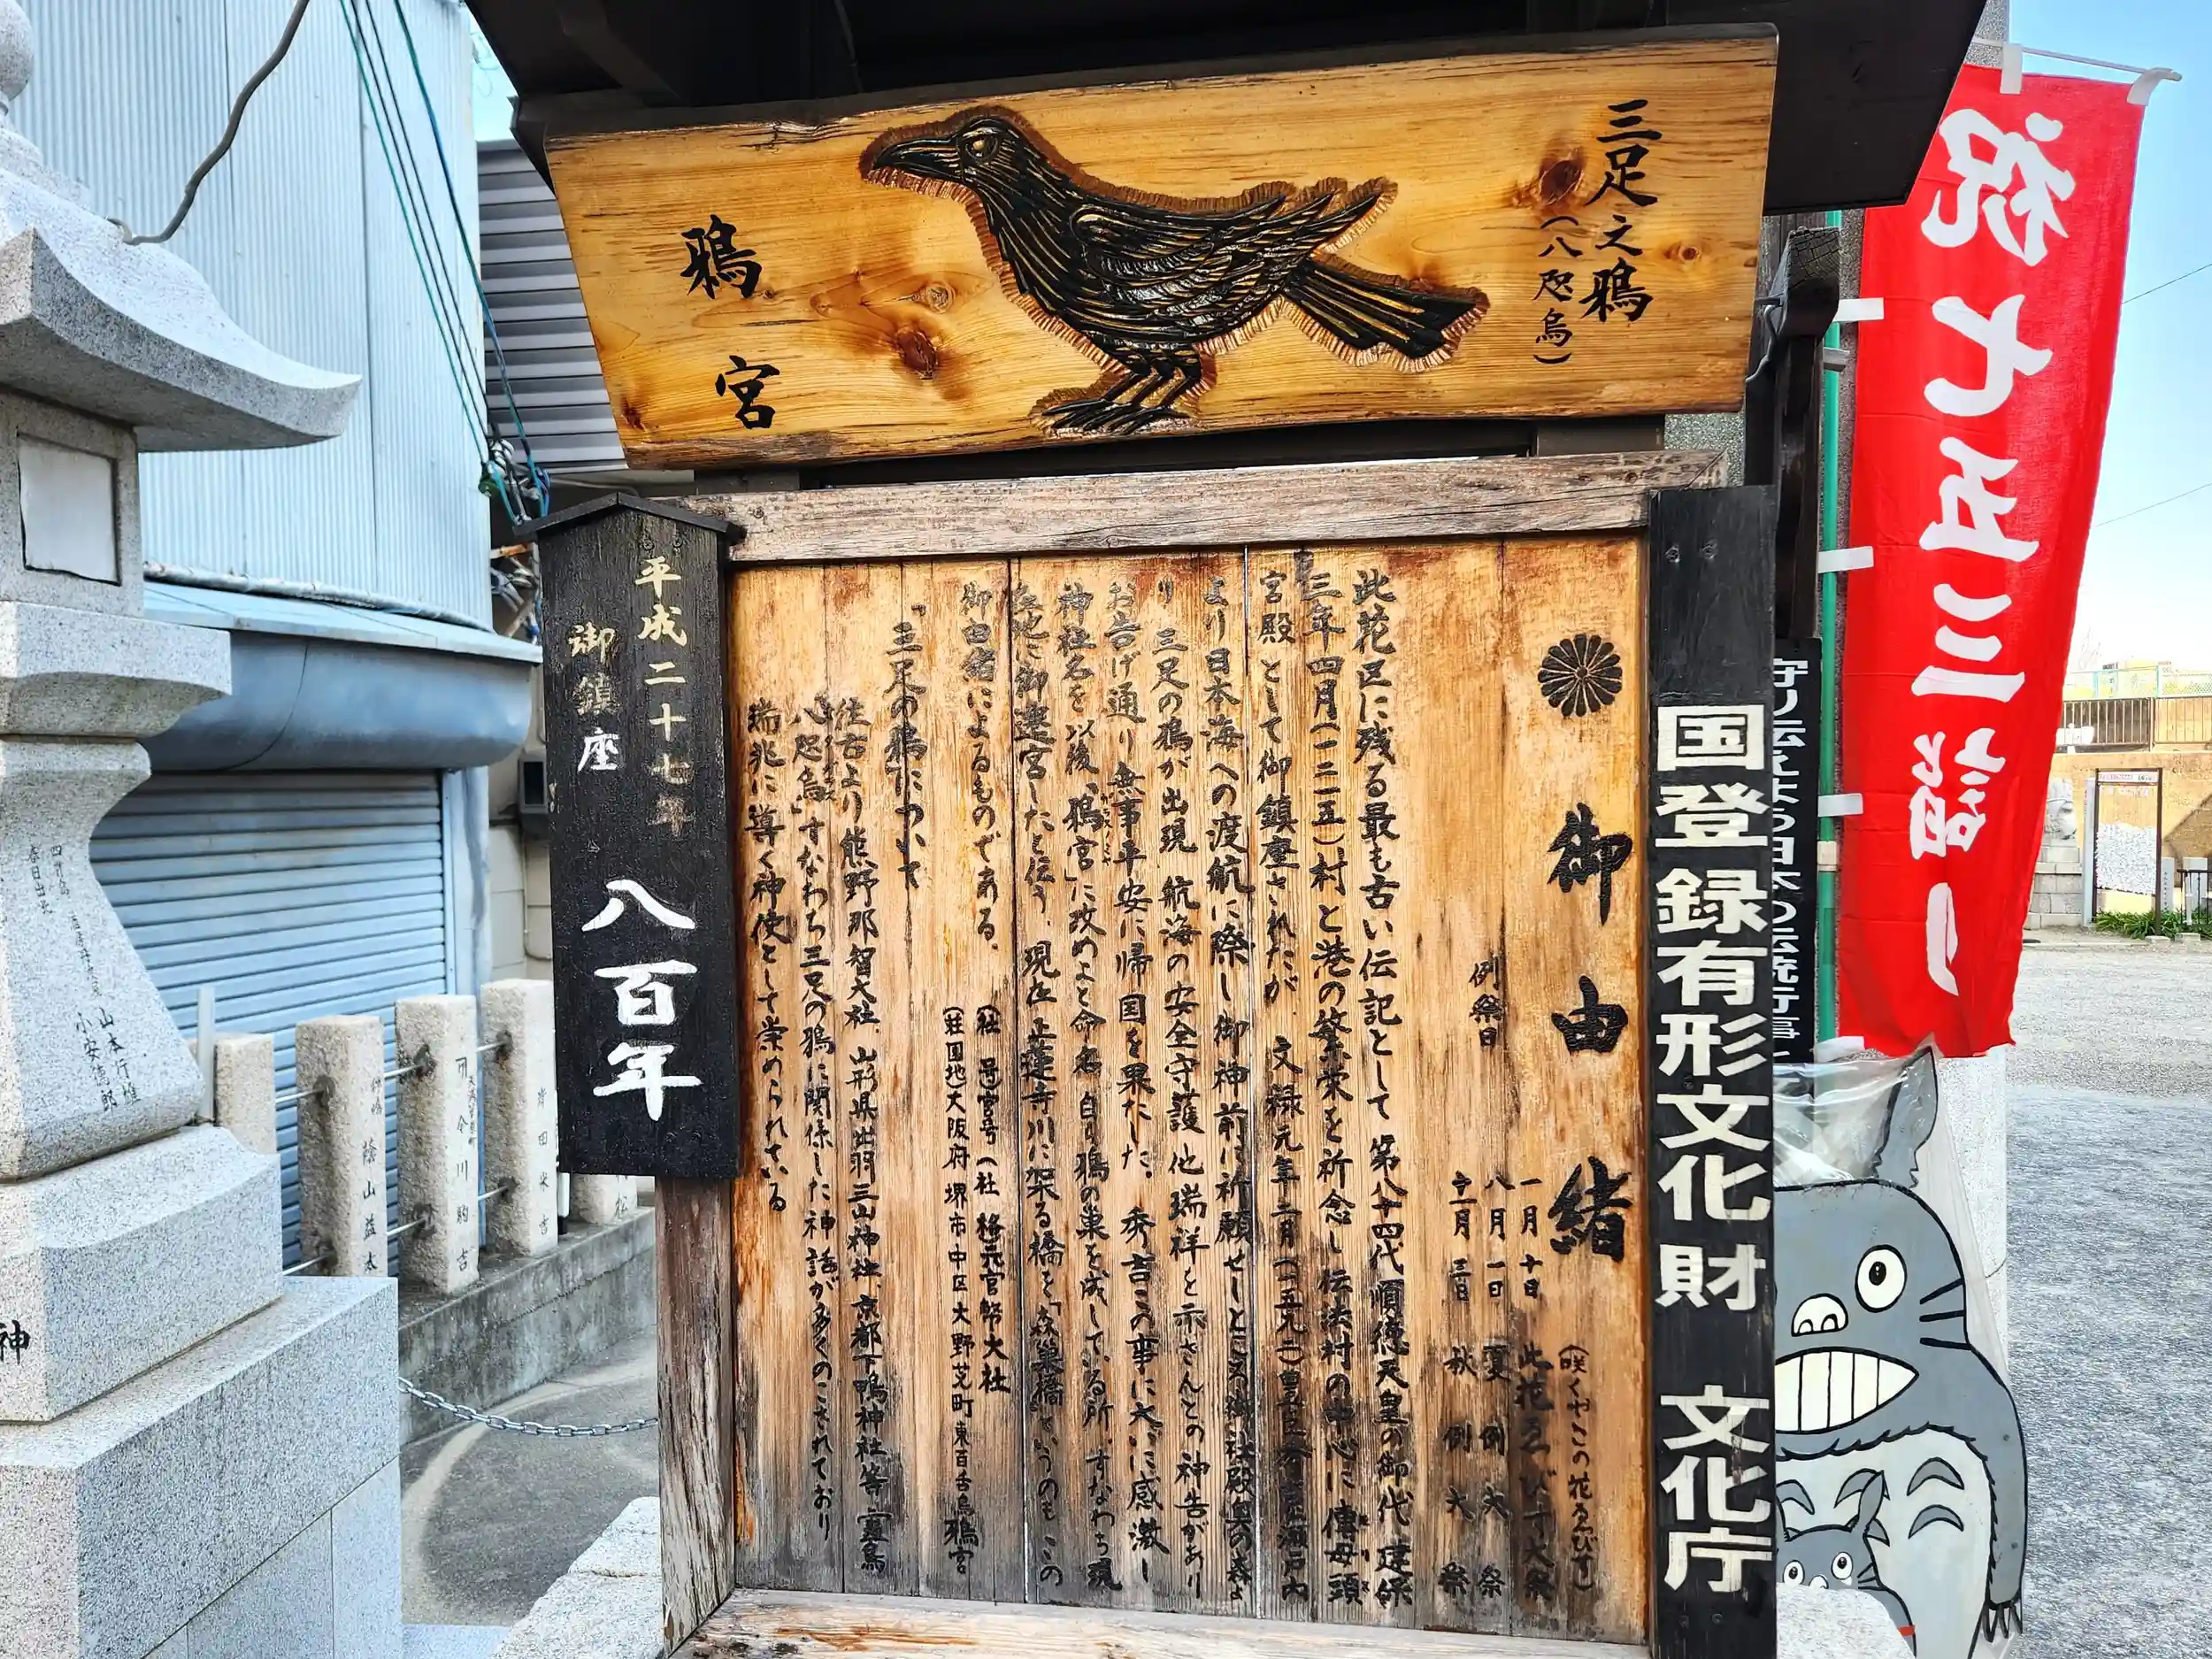 三足之鴉
(八咫烏)
鴉宮
祝七五三詣り
国登録有形文化財 文化庁
御由緒
例祭日
一月十日 此花ゑびす大祭
(咲くやこの花ゑびす)
八月一日 夏例大祭
十一月三日 秋例大祭
此花区に残る最も古い伝記として 第八十四代 順徳天皇の御代 建保
三年四月(一二一五)村と港の繁栄を祈念し 伝法村の中心に 傳母頭
宮殿として御鎮座されたが 文禄元年二月(一五九二)豊臣秀吉
より日本海への渡航に際し 御神前に祈願せしところ 御社殿奥の森よ
り 三足の鴉が出現 航海の安全守護 他瑞祥を示さんとの神告があり
お告げ通り 無事平安に帰国を果たした。 秀吉この事に大いに感激し
神社名を以後、「鴉宮」に改めよと命名 自り鴉の巣を成している所、すなわち現
在地に御遷宮したと伝う。 現在 正蓮寺川に架る橋を「森巣橋」というのも この
御由緒によるものである。
(社号)宮号(社格元官幣大社
(荘園地)大阪府堺市中区大野芝町東百舌鳥鴉宮
「三足の鴉」について
往古より熊野那智大社 山形県出羽三山神社、京都下鴨神社等
八咫烏、すなわち三足の鴉に関係した神話が多くのこされており
瑞兆に導く神使として崇められている
平成二十七年
御鎮座
八百年
山本行雄
小安徳郎
蔭山益太
今川駒吉
岸田米吉
神